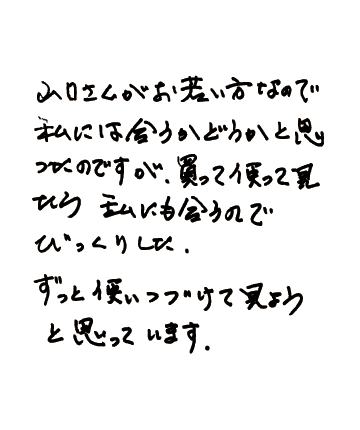 山口さんがお若い方なので
私には合うかどうかと思
ったのですが、買って使って見
たら 私にも合うので
びっくりした.
ずっと使いつづけて見よう
と思っています.